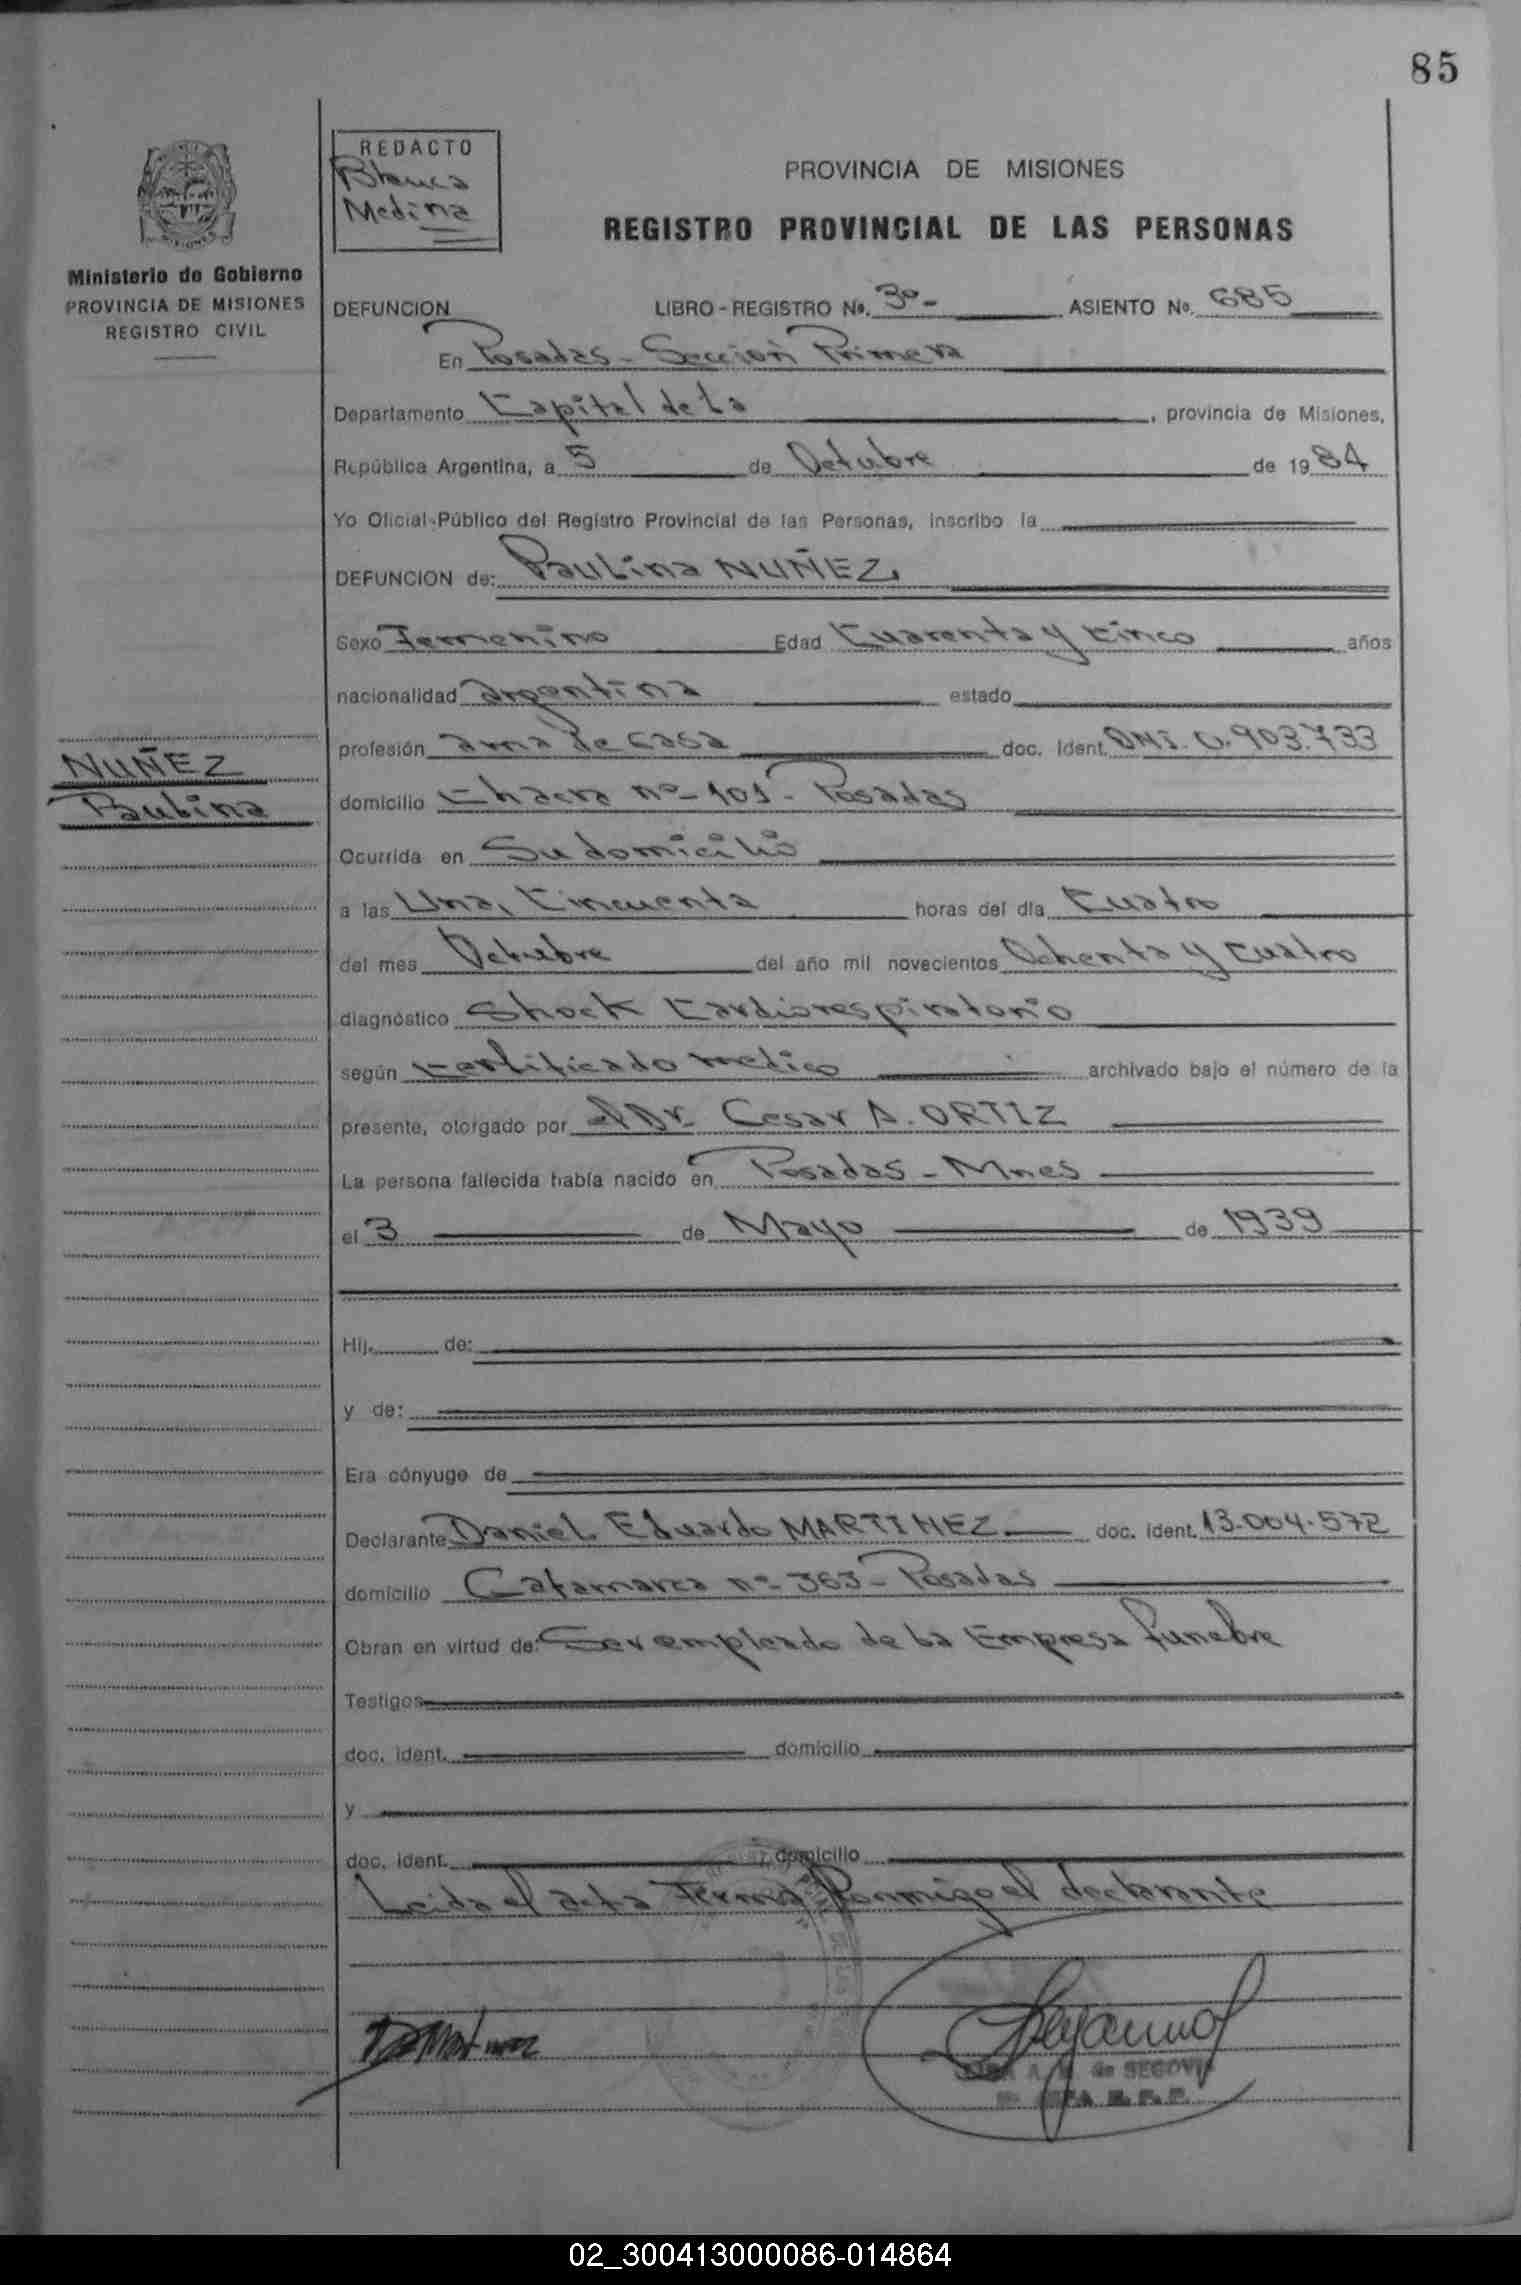 85
REDACTO
Blanca
Medina
PROVINCIA DE MISIONES
REGISTRO PROVINCIAL DE LAS PERSONAS
Ministerio de Gobierno
PROVINCIA DE MISIONES
REGISTRO CIVIL
DEFUNCION LIBRO - REGISTRO No. 3º- ASIENTO No. 685
En Posadas - Sección Primera
Departamento Capital de la , provincia de Misiones,
República Argentina, a 5 de Octubre de 1984
Yo Oficial Público del Registro Provincial de las Personas, inscribo la
DEFUNCION de: Paulina NUÑEZ
Sexo Femenino Edad Cuarenta y cinco años
nacionalidad argentina estado
NUÑEZ
Paulina
profesión ama de casa doc. ident. DNI. 0.903.733
domicilio Chacra nº- 101 - Posadas
Ocurrida en Su domicilio
a las Una, Cincuenta horas del día Cuatro
del mes Octubre del año mil novecientos Ochenta y cuatro
diagnóstico Shock Cardiorespiratorio
según certificado medico archivado bajo el número de la
presente, otorgado por el Dr. Cesar A. ORTIZ
La persona fallecida había nacido en Posadas - Mnes
el 3 de Mayo de 1939
Hij. de:
y de:
Era cónyuge de
Declarante Daniel Eduardo MARTINEZ doc. ident. 13.004.572
domicilio Catamarca nº- 363 - Posadas
Obran en virtud de: Ser empleado de la Empresa funebre
Testigos
doc. ident. domicilio
y
doc. ident. domicilio
Leida el acta Firma Conmigo el declarante
DEMartinez
A. de SEGOVIA
02_300413000086-014864